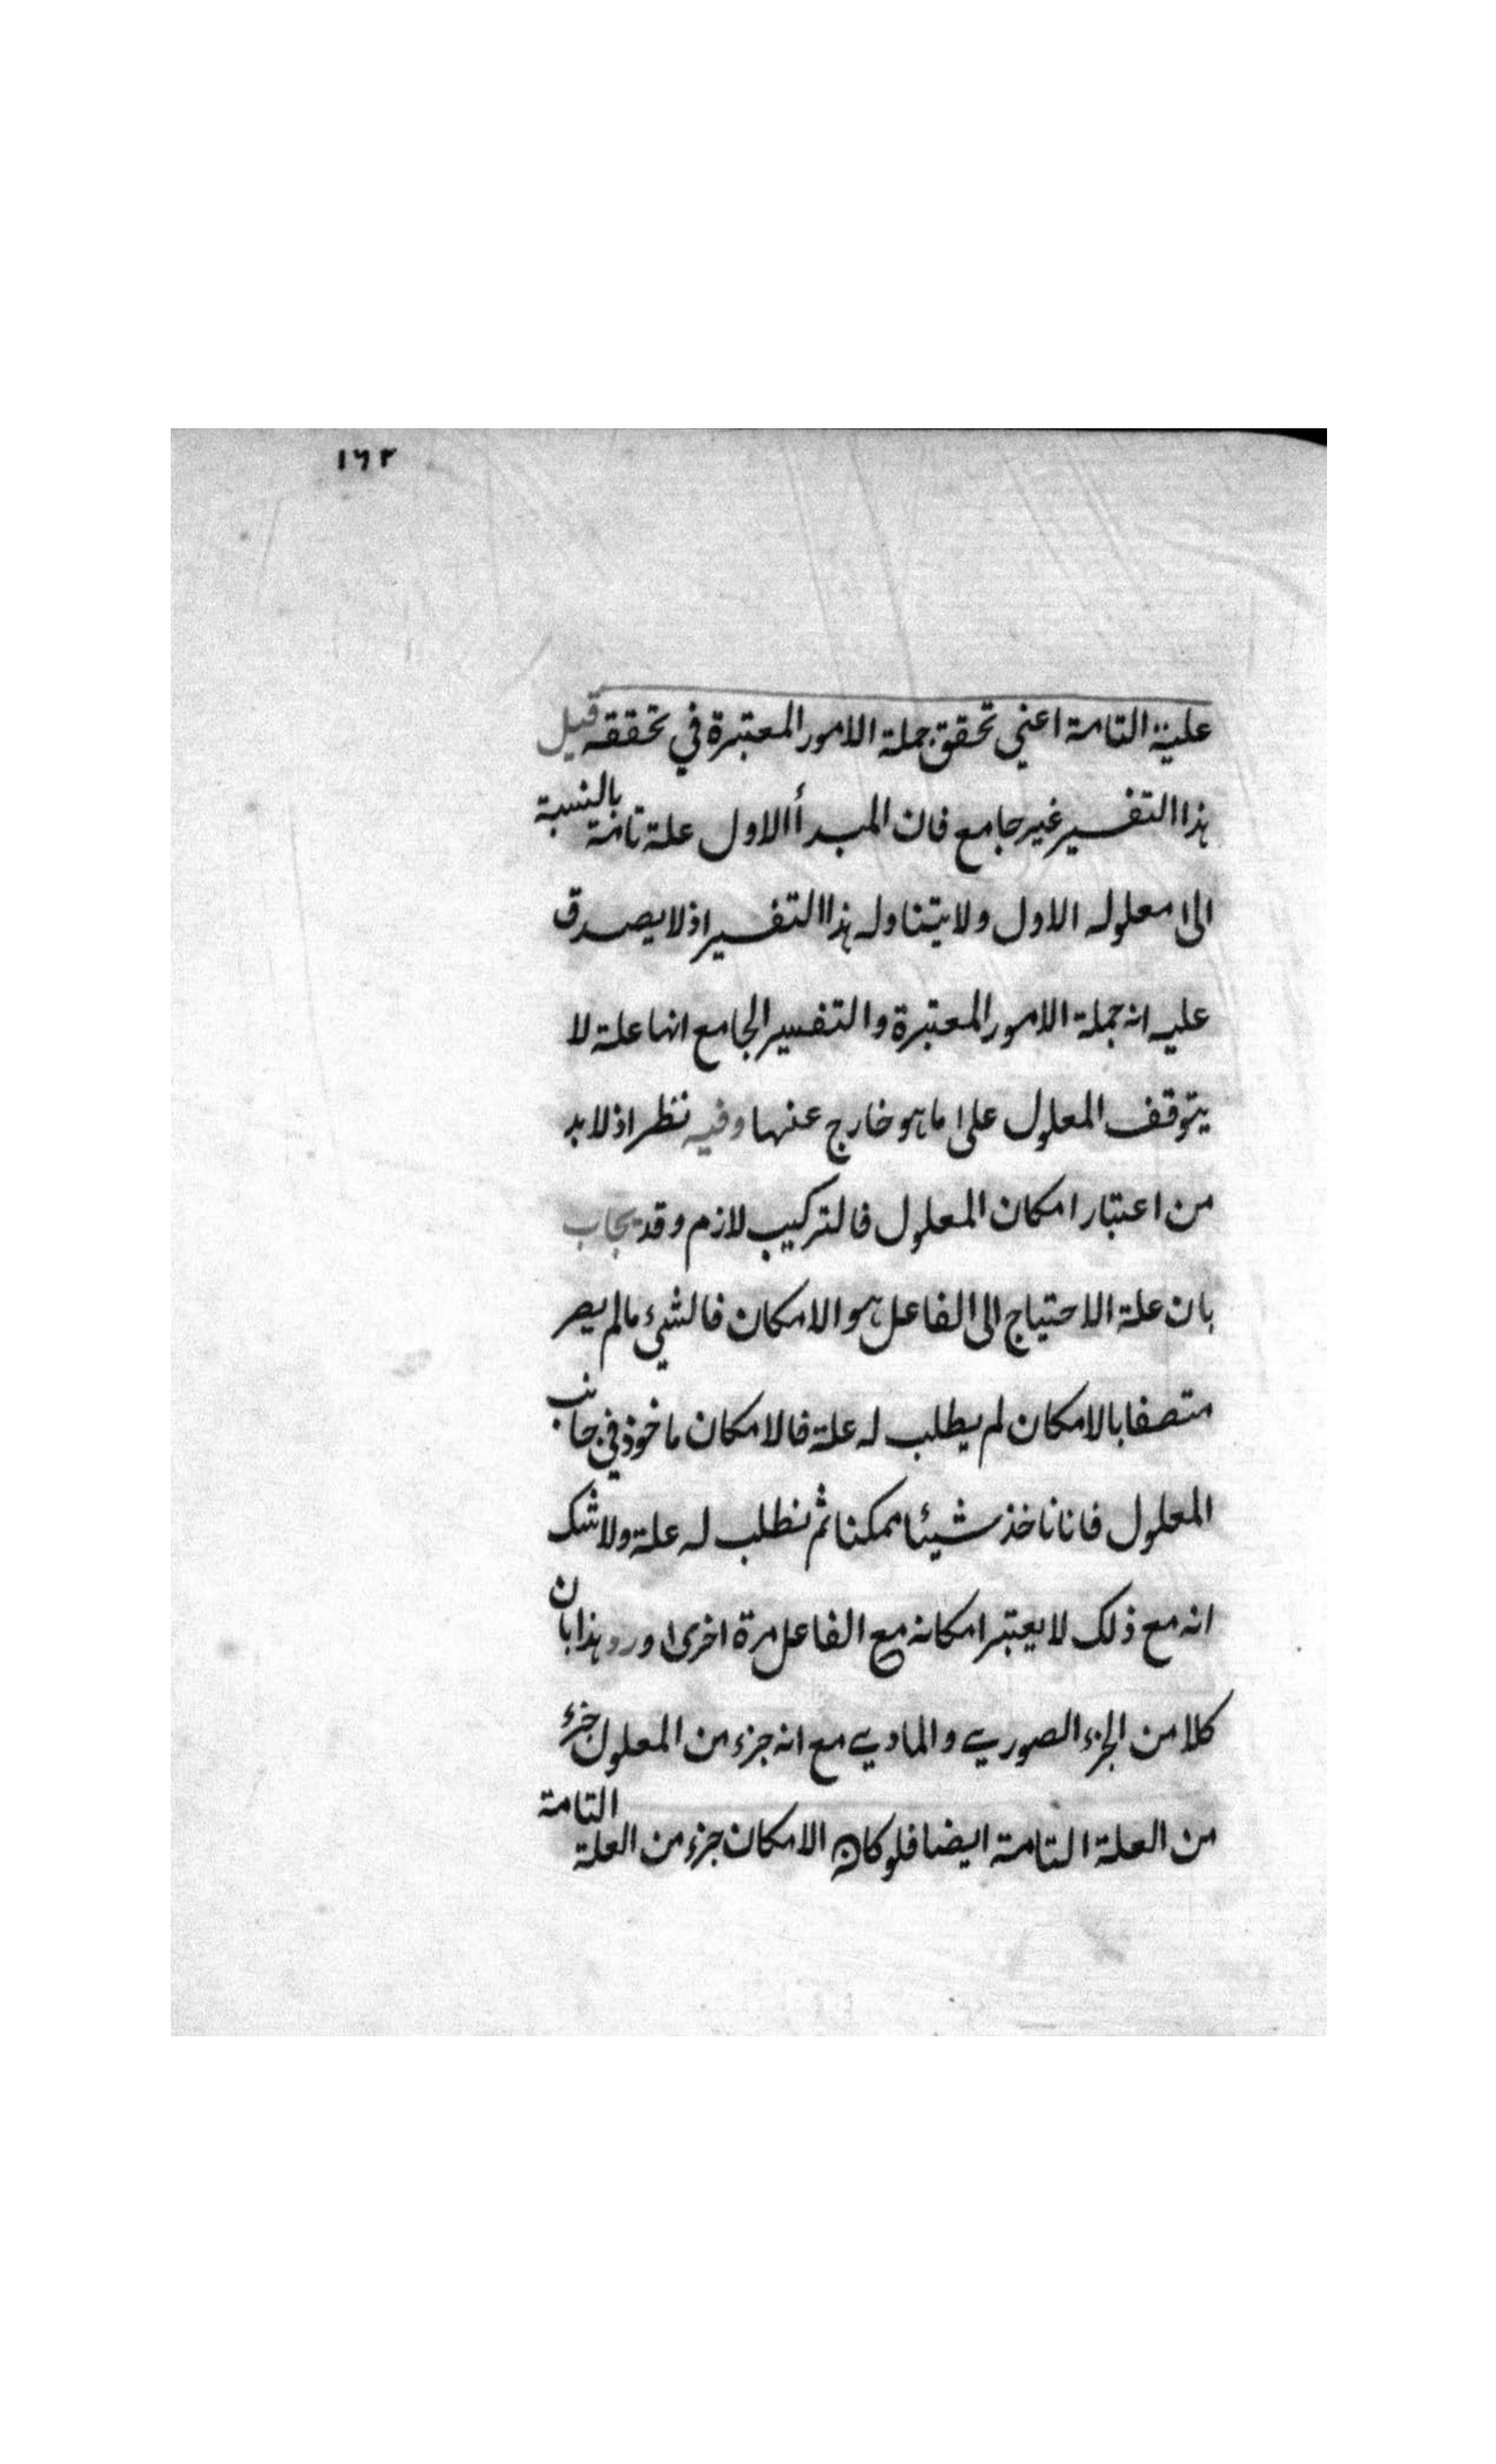 ١٦٢
علية التامة اعني تحقق جملة الامور المعتبرة في تحققه قيل
هذا التفسير غير جامع فان المبدأ الاول علة تامة بالنسبة
الى معلوله الاول ولا يتناوله هذا التفسير اذ لا يصدق
عليه انه جملة الامور المعتبرة والتفسير الجامع انها علة لا
يتوقف المعلول على ما هو خارج عنها وفيه نظر اذ لا بد
من اعتبار امكان المعلول فالتركيب لازم وقد يجاب
بان علة الاحتياج الى الفاعل هو الامكان فالشيء ما لم يصر
متصفا بالامكان لم يطلب له علة فالامكان ماخوذ في جانب
المعلول فانا ناخذ شيئا ممكنا ثم نطلب له علة ولا شك
انه مع ذلك لا يعتبر امكانه مع الفاعل مرة اخرى ورد هذا بان
كلا من الجزء الصوري والمادي مع انه جزء من المعلول جزء
من العلة التامة ايضا فلو كان الامكان جزء من العلة التامة